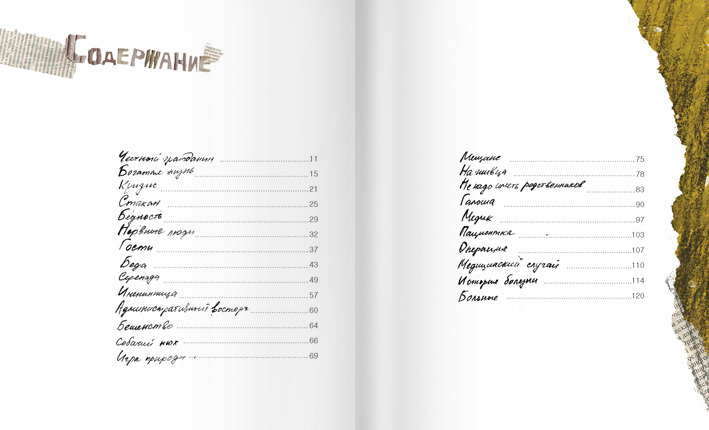 Содержание
Честный гражданин 11
Богатая жизнь 15
Кризис 21
Стакан 25
Бедность 29
Нервные люди 32
Гости 37
Беда 43
Серенада 49
Именинница 57
Административный восторг 60
Бешенство 64
Собачий нюх 66
Игра природы 69
Мещане 75
На живца 78
Не надо иметь родственников 83
Галоша 90
Медик 97
Пациентка 103
Операция 107
Медицинский случай 110
История болезни 114
Больные 120